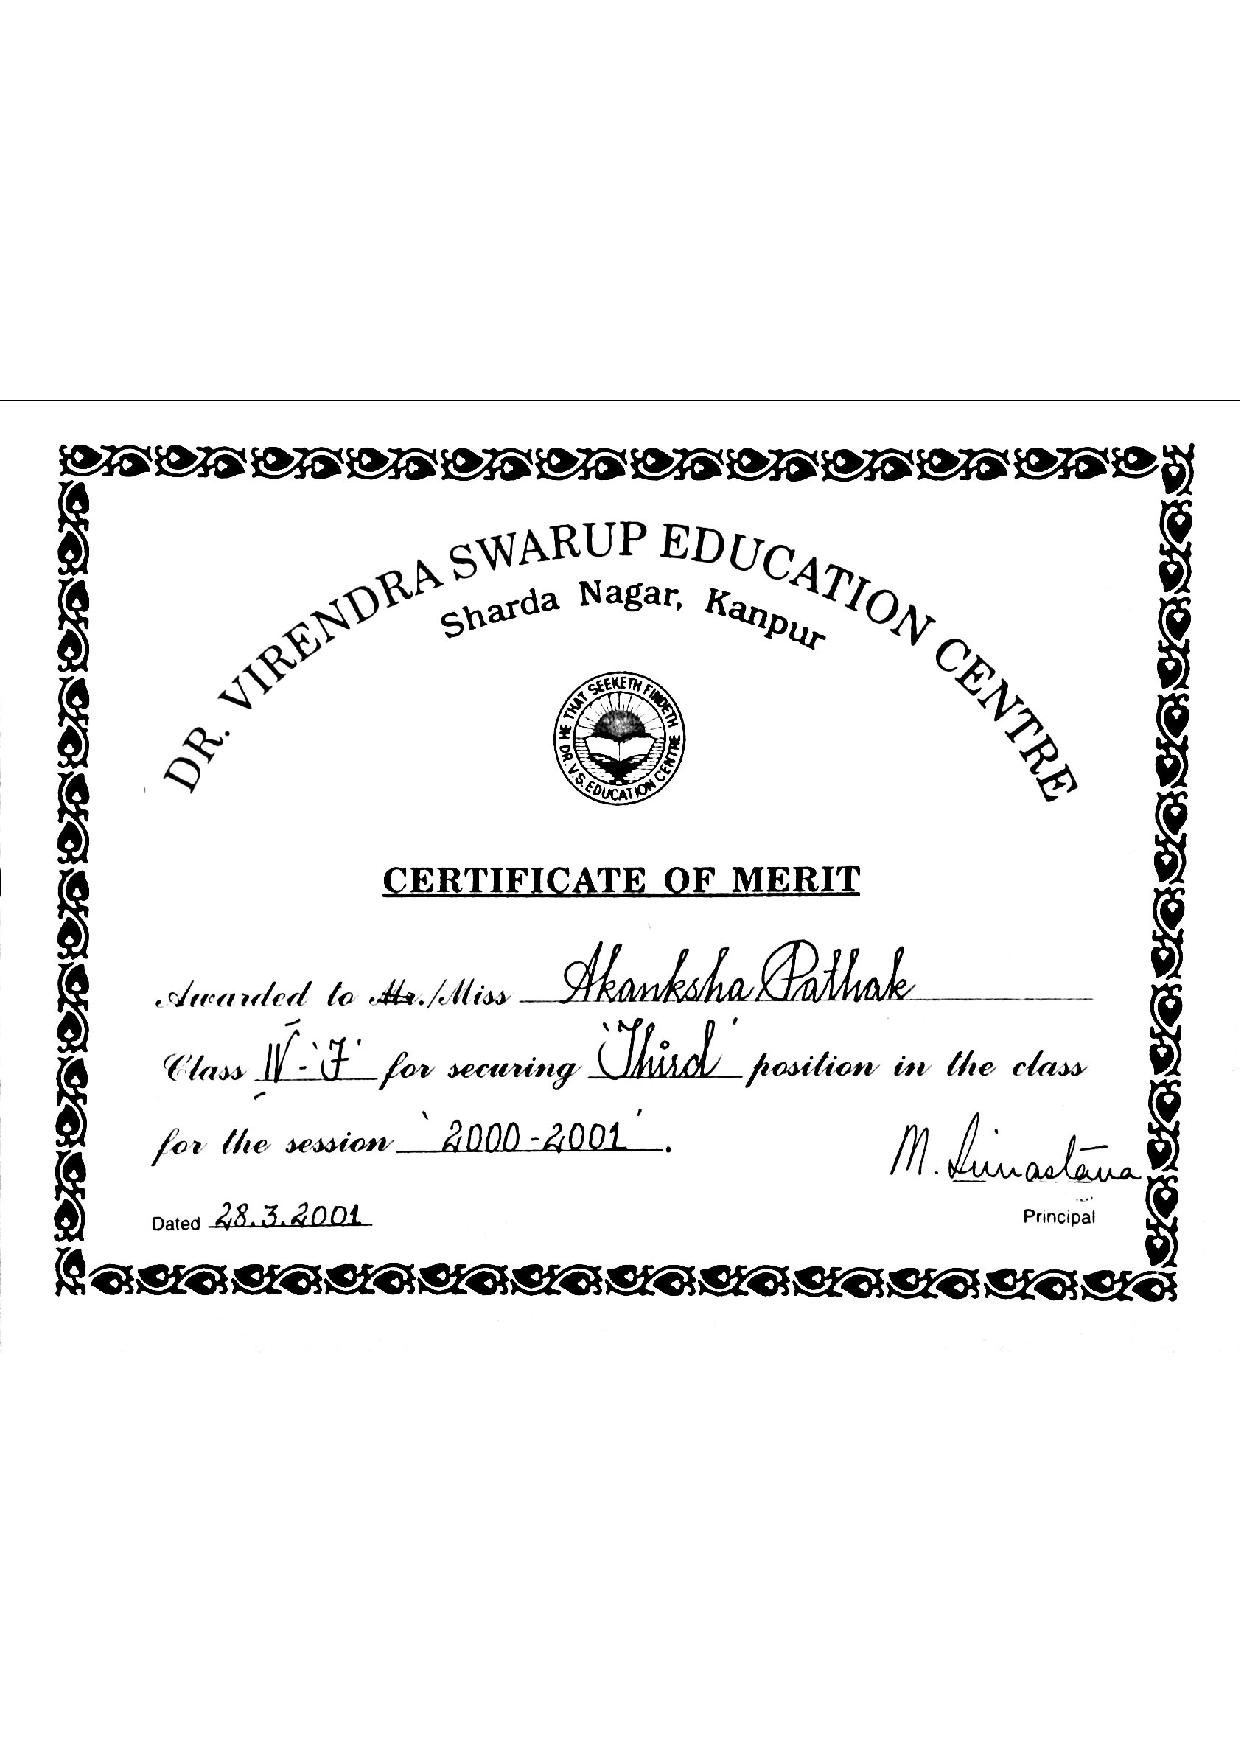 DR. VIRENDRA SWARUP EDUCATION CENTRE
Sharda Nagar, Kanpur
HE THAT SEEKETH FINDETH
DR. V.S. EDUCATION CENTRE
CERTIFICATE OF MERIT
Awarded to Mr./Miss Akanksha Pathak
Class IV - 'F' for securing 'Third' position in the class
for the session '2000-2001'.
M. Srivastava
Dated 28.3.2001
Principal